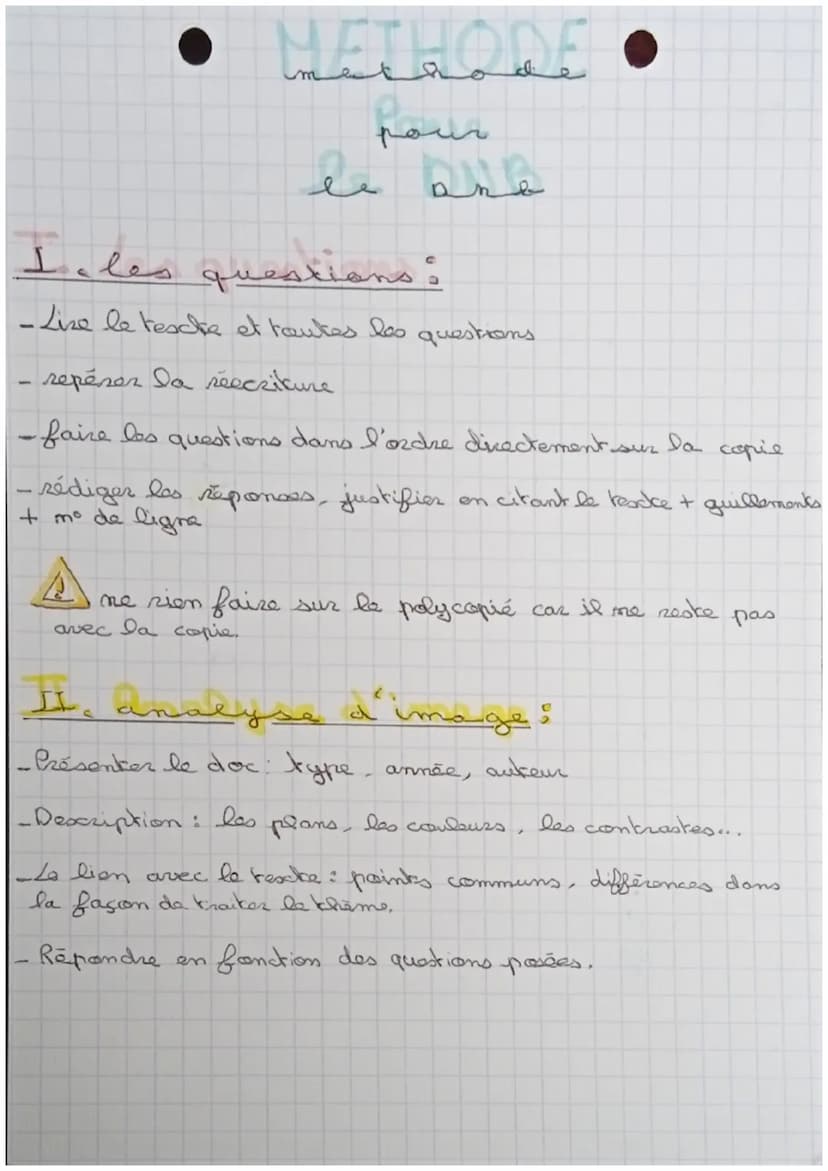 METHODE
methode
pour
le DNB
I. les questions :
- Lire le texte et toutes les questions
- repérer la réecriture
- faire les questions dans l'ordre directement sur la copie
- rédiger les réponses, justifier en citant le texte + guillements
+ n° de ligne
! ne rien faire sur le polycopié car il ne reste pas
avec la copie.
II. Analyse d'image :
- Présenter le doc : type, année, auteur
- Description : les plans, les couleurs, les contrastes...
- Le lien avec le texte : points communs, différences dans
la façon de traiter le thème.
- Répondre en fonction des questions posées.